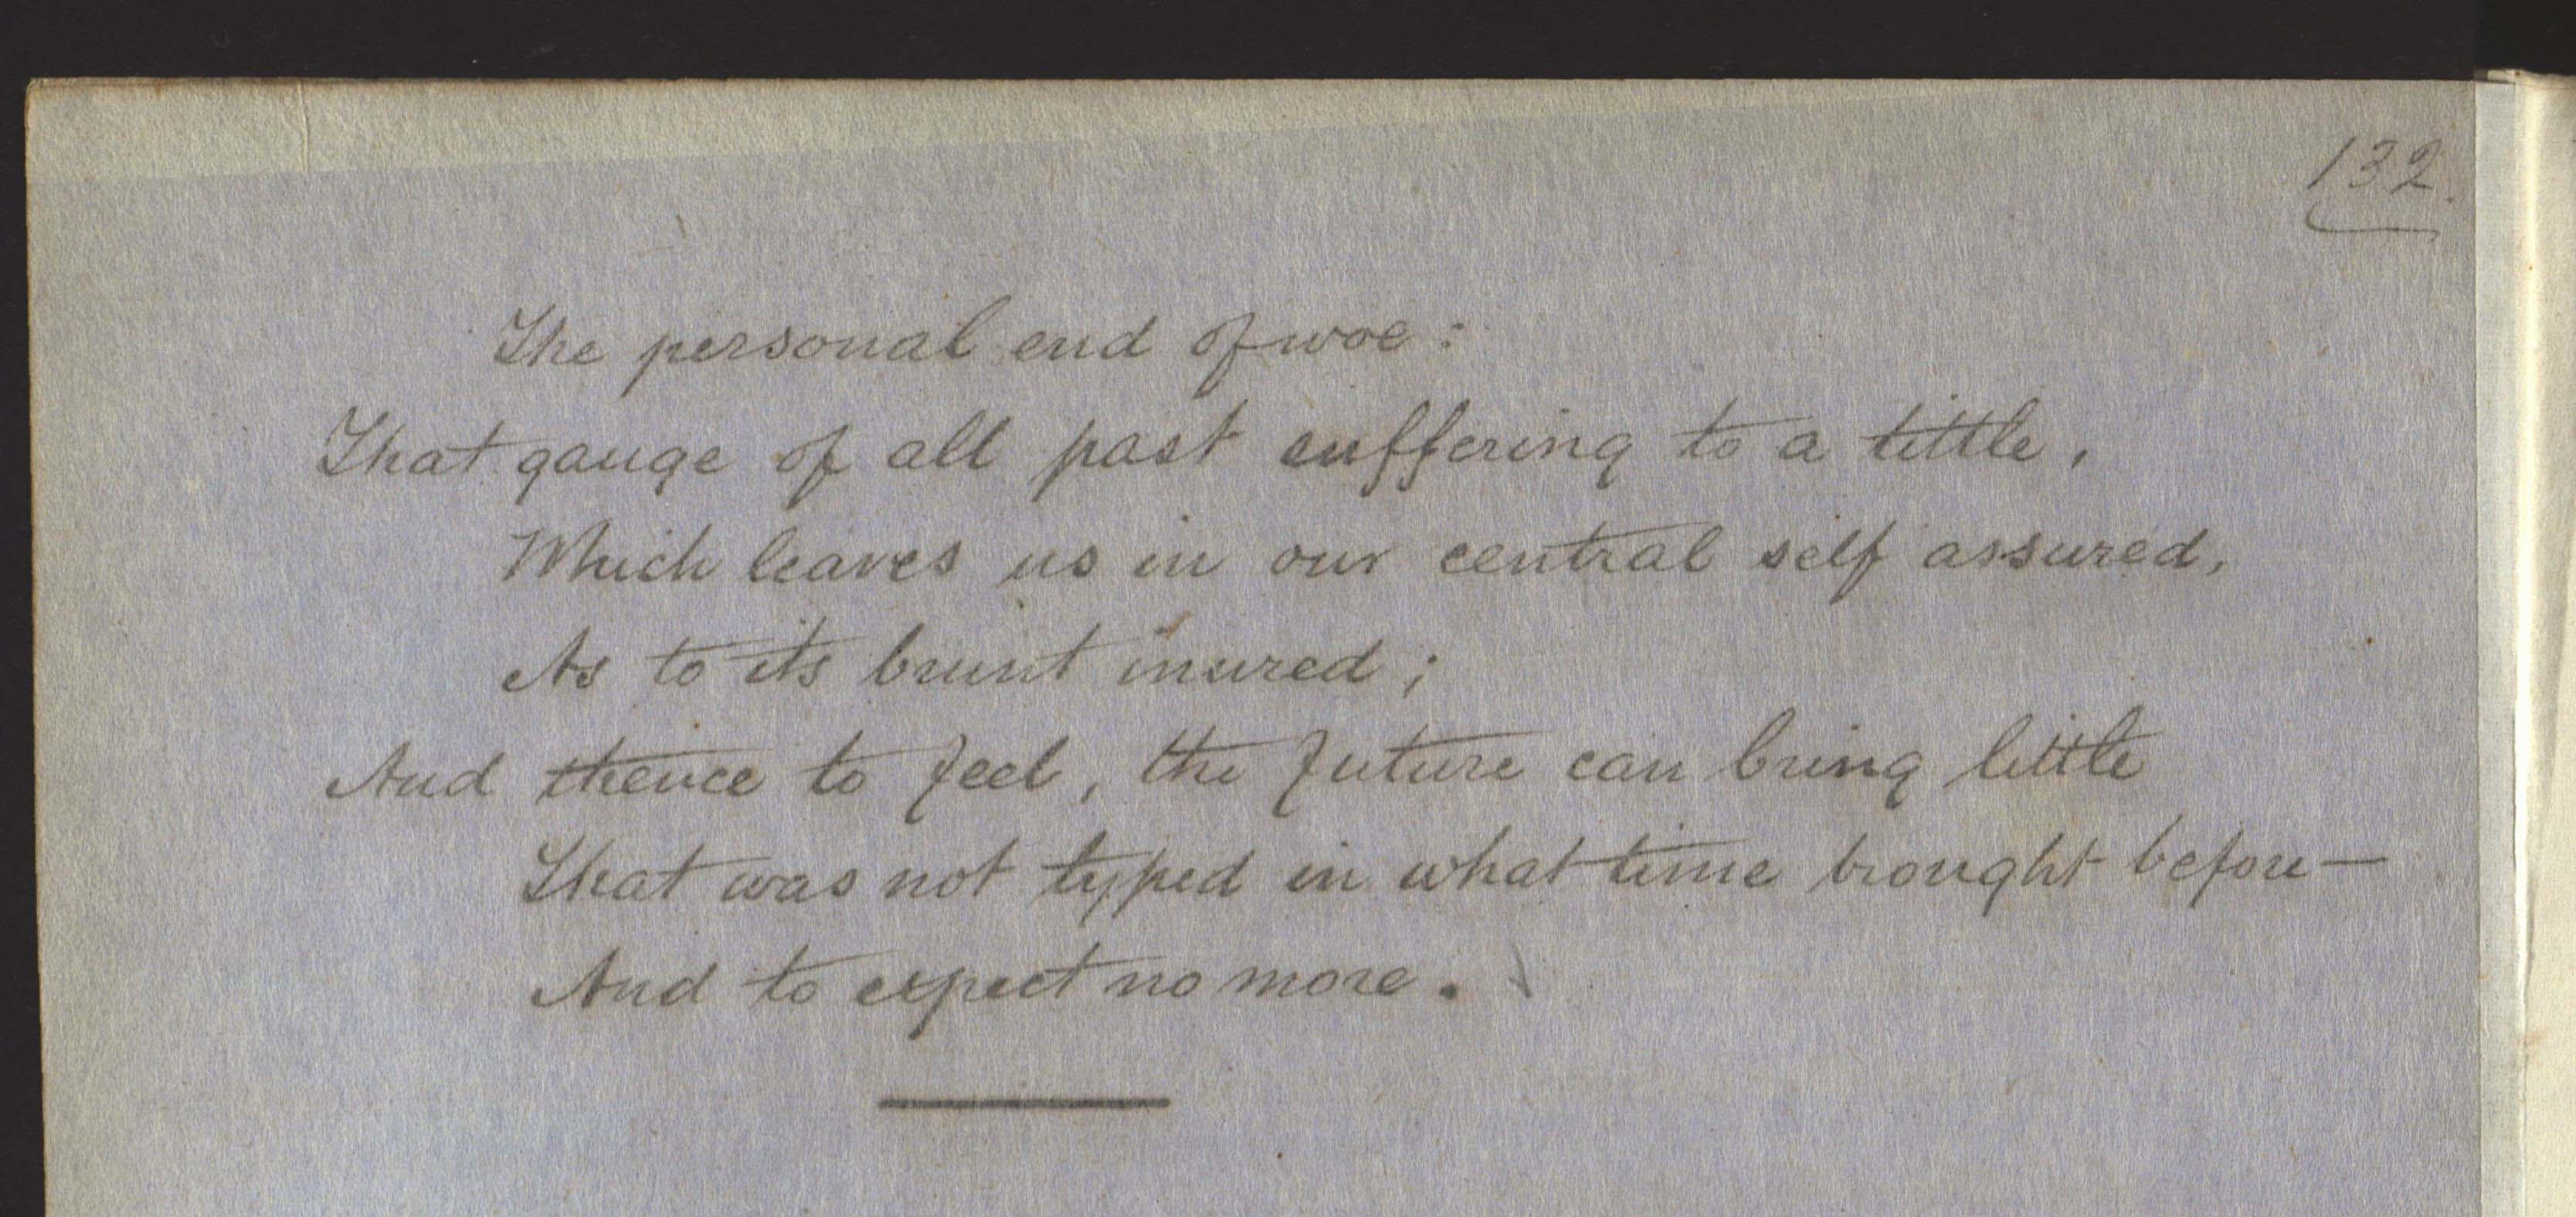 132.
The personal end of woe:
That gauge of all past suffering to a tittle,
Which leaves us in our central self assured,
As to its brunt inured;
And thence to feel, the future can bring little
That was not typed in what time brought before—
And to expect no more.